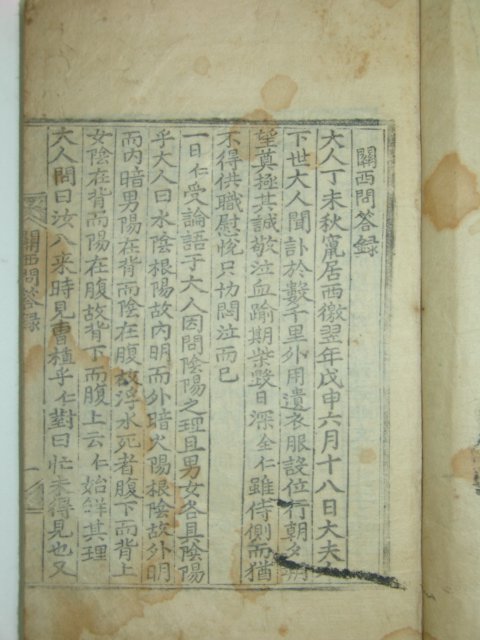 關西問答錄
大人丁未秋竄居西徼翌年戊申六月十八日大夫人
下世大人聞訃於數千里外用遺衣服設位行朝夕朔
望奠極其誠敬泣血踰期柴毁日深全仁雖侍側而猶
不得供職慰悅只切悶泣而已
一日仁受論語于大人因問陰陽之理且男女各具陰陽
乎大人曰水陰根陽故內明而外暗火陽根陰故外明
而內暗男陽在背而陰在腹故浮水死者腹下而背上
女陰在背而陽在腹故背下而腹上云仁始鮮其理
大人問曰汝入来時見曹植乎仁對曰忙未得見也又
關西問答録
一